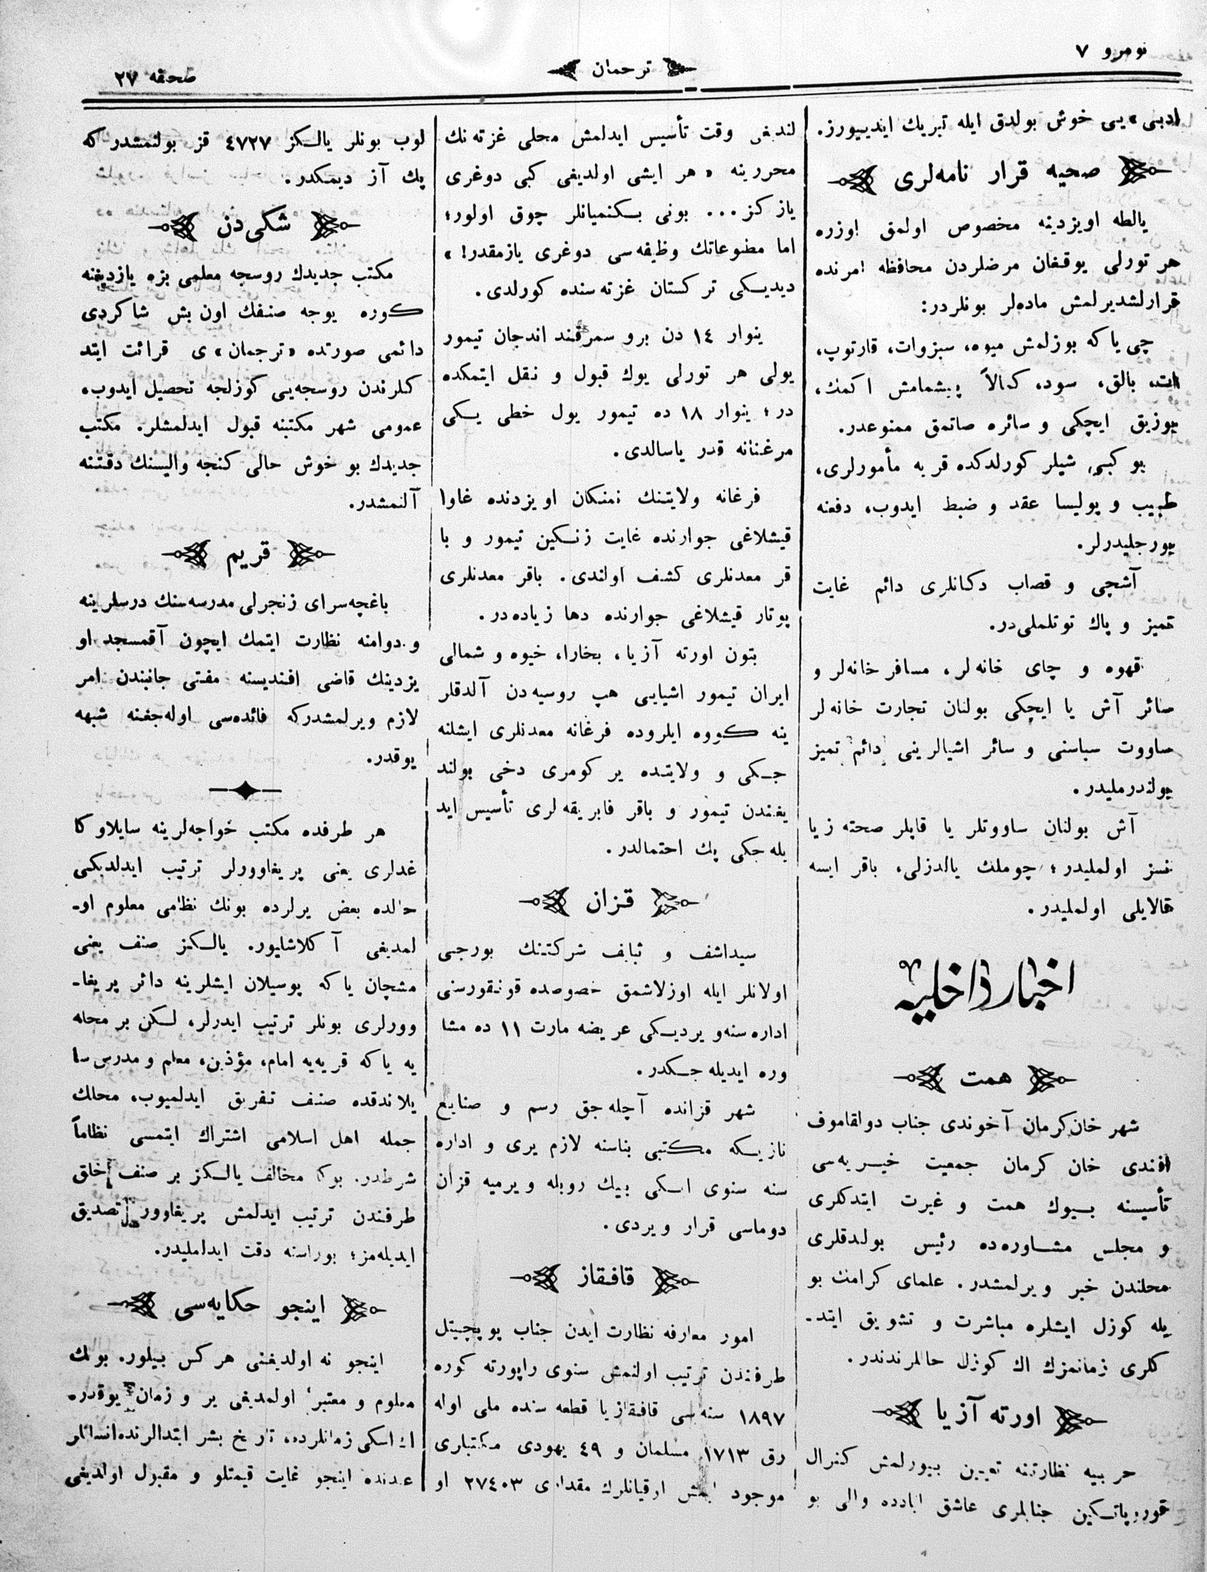 نومرو ٧
ترجمان
صحقه ٢٧
ادبی» یی خوش بولدق ایله تبریك ایدییورز.
صحیه قرار نامه‌لری
یالطه اویزدینه مخصوص اولمق اوزره
هر تورلی یوقغان مرضلردن محافظه امرنده
قرارلشدیرلمش ماده‌لر بونلردر:
چی یا که بوزلمش میوه، سبزوات، قارتوپ،
ات، بالق، سود، کمالاً پیشمامش اکمك،
بوزیق ایچکی و سائره صاتمق ممنوعدر.
بو کبی شیلر کورلدکده قریه مأمورلری،
طبیب و پولیسا عقد و ضبط ایدوب، دفعنه
بورجلیدرلر.
آشچی و قصاب دکانلری دائم غایت
تمیز و پاك توتلملی‌در.
قهوه و چای خانه‌لر، مسافر خانه‌لر و
سائر آش یا ایچکی بولنان تجارت خانه‌لر
ساووت سباسنی و سائر اشیالرینی دائم تمیز
بولندرملیدر.
آش بولنان ساووتلر یا قاپلر صحته زیا
نسز اولملیدر؛ چوملك یالدزلی، باقر ایسه
قالایلی اولملیدر.
اخبار داخلیه
همت
شهر خان‌کرمان آخوندی جناب دولقاموف
افندی خان کرمان جمعیت خیریه‌سی
تأسیسنه بیوك همت و غیرت ایتدکلری
و مجلس مشاوره‌ده رئیس بولدقلری
محلندن خبر ویرلمشدر. علمای کرامك بو
یله کوزل ایشلره مباشرت و تشویق ایتد-
کلری زمانمزك اك کوزل حالمرندندر.
اورته آزیا
حربیه نظارتنه تعیین بیورلمش کنرال
قوروپاتکین جنابلری عاشق ابادده والی بو
لندیغی وقت تأسیس ایدلمش محلی غزته‌نك
محررینه «هر ایشی اولدیغی کبی دوغری
یازکز... بونی بکنمیانلر چوق اولور؛
اما مطبوعاتك وظیفه‌سی دوغری یازمقدر!»
دیدیکی ترکستان غزته‌سنده کورلدی.
ینوار ١٤ دن برو سمرقند اندجان تیمور
یولی هر تورلی یوك قبول و نقل ایتمکده
در؛ ینوار ١٨ ده تیمور یول خطی یکی
مرغنانه قدر یاسالدی.
فرغانه ولایتنك نمنکان اویزدنده غاوا
قیشلاغی جوارنده غایت زنکین تیمور و با
قر معدنلری کشف اولندی. باقر معدنلری
پوتار قیشلاغی جوارنده دها زیاده‌در.
بتون اورته آزیا، بخارا، خیوه و شمالی
ایران تیمور اشیایی هپ روسیه‌دن آلدقلر
ینه کووه ایلروده فرغانه معدنلری ایشلنه
جکی و ولایتده یر کومری دخی بولند
یغندن تیمور و باقر فابریقه‌لری تأسیس اید
یله جکی پك احتمالدر.
قزان
سیداشف و ثبابف شرکتنك بورجی
اولانلر ایله اوزلاشمق خصوصده قونقورسنی
اداره سنه ویردیکی عریضه مارت ١١ ده مشا
وره ایدیله‌جکدر.
شهر قزانده آچله‌جق رسم و صنایع
نازیکه مکتبی بناسنه لازم یری و اداره
سنه سنوی اسکی بیك روبله ویرمیه قزان
دوماسی قرار ویردی.
قافقاز
امور معارفه نظارت ایدن جناب پوپچیتل
طرفندن ترتیب اولنمش سنوی راپورته کوره
١٨٩٧ سنه‌سی قافقازیا قطعه سنده ملی اوله
رق ١٧١٣ مسلمان و ٤٩ یهودی مکتبلری
موجود ایمش اوقیانلرك مقداری ٢٧٤٠٣ او
لوب بونلر یالکز ٤٧٢٧ قز بولنمشدر که
پك آز دیمکدر.
شکی‌دن
مکتب جدیدك روسجه معلمی بزه یازدیغنه
کوره یوجه صنفك اون بش شاکردی
دائمی صورتده «ترجمان»ی قرائت ایتد
کلرندن روسجه‌یی کوزلجه تحصیل ایدوب،
عمومی شهر مکتبنه قبول ایدلمشلر. مکتب
جدیدك بو خوش حالی کنجه والیسنك دقتنه
آلنمشدر.
قریم
باغچه‌سرای زنجرلی مدرسه‌سنك درسلرینه
و دوامنه نظارت ایتمك ایچون آقمسجد او
یزدینك قاضی افندیسنه مفتی جانبندن امر
لازم ویرلمشدرکه فائده‌سی اوله‌جغنه شبهه
یوقدر.
هر طرفده مکتب خواجه‌لرینه سایلاو کا
غدلری یعنی پریغاوورلر ترتیب ایدلدیکی
حالده بعض یرلرده بونك نظامی معلوم او-
لمدیغی آکلاشلیور. یالکز صنف یعنی
مشچان یاکه پوسیلان ایشلرینه دائر پریغا-
وورلری بونلر ترتیب ایدرلر، لکن بر محله
یه یاکه قریه‌یه امام، مؤذین، معلم و مدرس سا
یلاندقده صنف تفریق ایدلمیوب، محلك
جمله اهل اسلامی اشتراك ایتمسی نظاماً
شرطدر. بوکا مخالف یالکز بر صنف خلق
طرفندن ترتیب ایدلمش پریغاوور تصدیق
ایدیله‌مز؛ بوراسنه دقت ایدلملیدر.
اینجو حکایه‌سی
اینجو نه اولدیغنی هر کس بیلور. بونك
معلوم و معتبر اولمدیغی یر و زمان یوقدر.
اك اسکی زمانلرده، تاریخ بشر ابتدالرنده انسانلر
عندنده اینجو غایت قیمتلو و مقبول اولدیغی